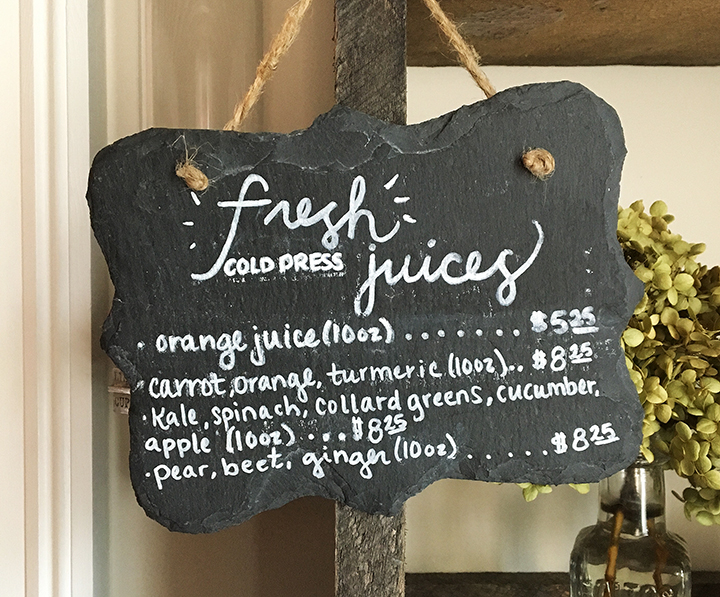 fresh
COLD PRESS juices
· orange juice (10oz) ....... $5.25
· carrot, orange, turmeric (10oz).. $8.25
· Kale, spinach, collard greens, cucumber,
apple (10oz) ... $8.25
· pear, beet, ginger (10oz) ...... $8.25